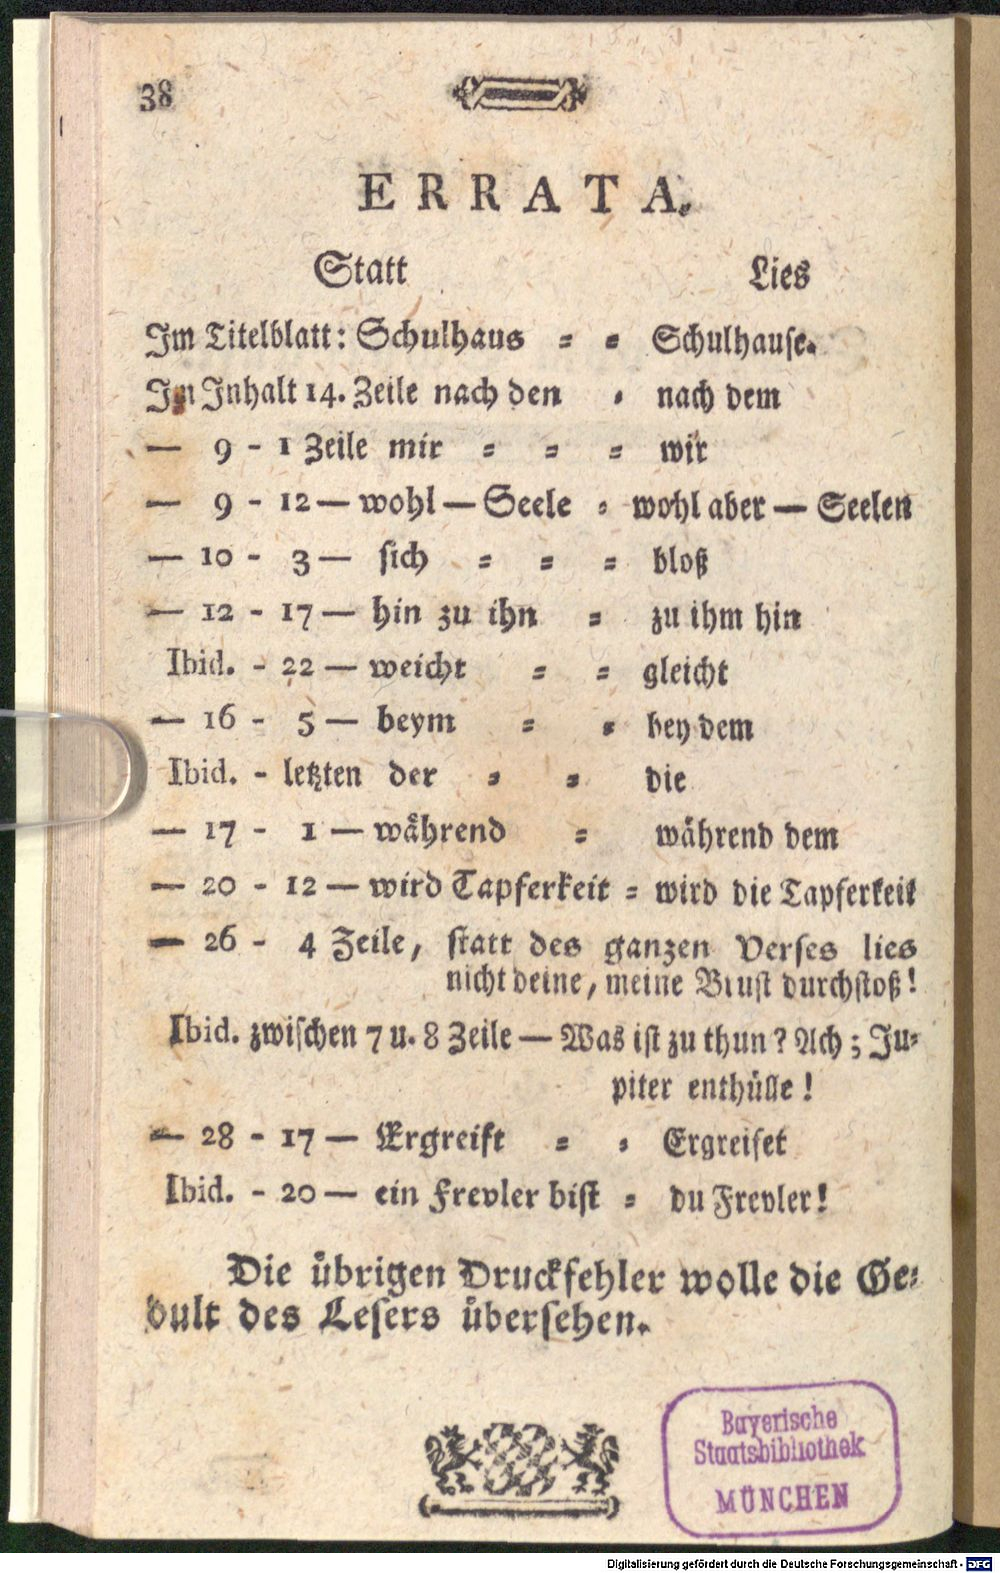 38
ERRATA.
Statt Lies
Im Titelblatt: Schulhaus = = Schulhause.
Im Inhalt 14. Zeile nach den = nach dem
— 9 - 1 Zeile mir = = = wir
— 9 - 12 — wohl — Seele = wohl aber — Seelen
— 10 - 3 — sich = = = bloß
— 12 - 17 — hin zu ihn = zu ihm hin
Ibid. - 22 — weicht = = gleicht
— 16 - 5 — beym = = bey dem
Ibid. - letzten der = = die
— 17 - 1 — während = während dem
— 20 - 12 — wird Tapferkeit = wird die Tapferkeit
— 26 - 4 Zeile, statt des ganzen Verses lies
nicht deine, meine Brust durchstoß!
Ibid. zwischen 7 u. 8 Zeile — Was ist zu thun? Ach; Ju=
piter enthülle!
— 28 - 17 — Ergreift = = Ergreifet
Ibid. - 20 — ein Frevler bist = du Frevler!
Die übrigen Druckfehler wolle die Ge=
dult des Lesers übersehen.
Bayerische
Staatsbibliothek
MÜNCHEN
Digitalisierung gefördert durch die Deutsche Forschungsgemeinschaft - DFG